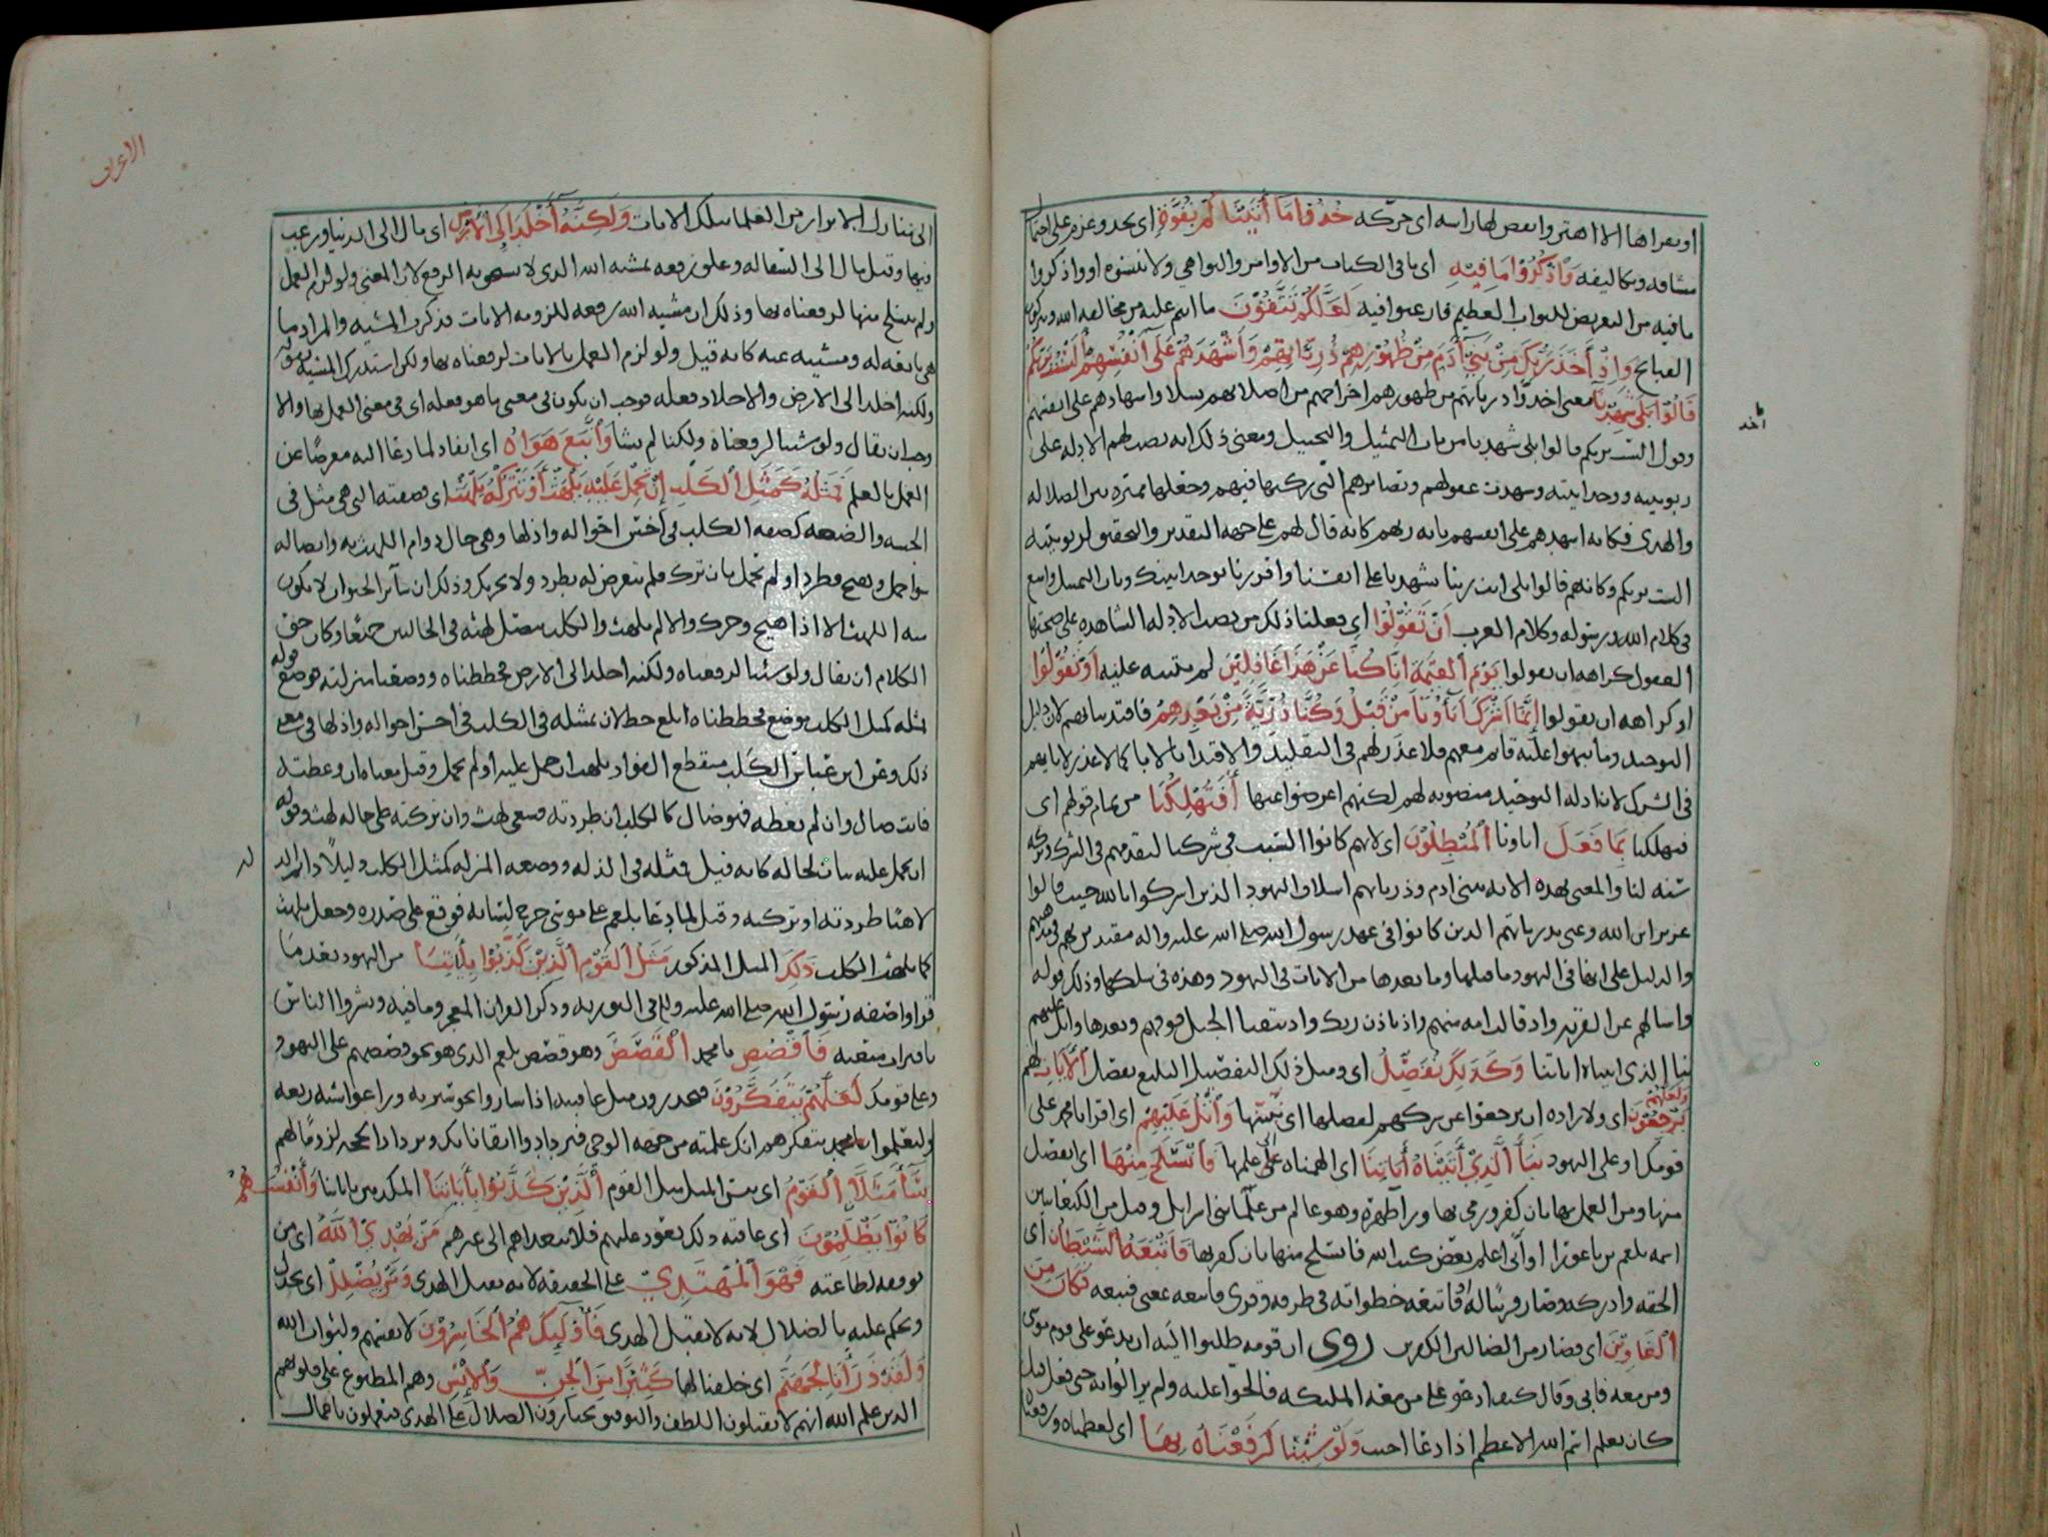 او يقراها الا اهتز وانغض لها راسه اى حركه خُذُوا مَا أَتَيْنَاكُمْ بِقُوَّةٍ اى بجد وعزم على احتمال
مشاقه وتكاليفه وَاذْكُرُوْا مَا فِيْهِ اى ما فى الكتاب من الاوامر والنواهي ولا تنسوه او واذكروا
ما فيه من التعريض للثواب العظيم فارغبوا فيه لَعَلَّكُمْ تَتَّقُوْنَ ما انتم عليه من مخالفه الله
القبائح وَاِذْ أَخَذَ رَبُّكَ مِنْ بَنِيْ أَدَمَ مِنْ ظُهُوْرِهِمْ ذُرِّيَّاتِهِمْ وَأَشْهَدَهُمْ عَلَى أَنْفُسِهِمْ أَلَسْتُ بِرَبِّكُمْ
قَالُوْا بَلَى شَهِدْنَا معنى اخذ ذرياتهم من ظهورهم اخراجهم من اصلابهم نسلا واشهادهم على انفسهم
وقول الست بربكم قالوا بلى شهدنا من باب التمثيل والتخييل ومعنى ذلك انه نصب لهم الادله على
ربوبيته ووحدانيته وشهدت عقولهم وبصائرهم التى ركبها فيهم وجعلها مميزه بين الضلاله
والهدى فكانه اشهدهم على انفسهم بانه ربهم كانه قال لهم على جهه التقدير والتحقيق لربوبيته
الست بربكم وكانهم قالوا بلى انت ربنا شهدنا على انفسنا واقررنا بوحدانيتك وباب التمثيل واسع
فى كلام الله ورسوله وكلام العرب أَنْ تَقُوْلُوْا اى فعلنا ذلك من نصب الادله الشاهده على صحتها
العقول كراهه ان تقولوا يَوْمَ القِيٰمَةِ اِنَّا كُنَّا عَنْ هَذَا غَافِلِيْنَ لم ننبه عليه أَوْ تَقُوْلُوْا
او كراهه ان تقولوا إِنَّمَا اَشْرَكَ اَبَآؤُنَا مِنْ قَبْلُ وَكُنَّا ذُرِّيَّةً مِنْ بَعْدِهِمْ فاقتدينا بهم لان دلايل
التوحيد وما نبهوا عليه قائم معهم فلا عذر لهم فى التقليد والاقتدا بالابا كما لا عذر لابايهم
فى الشرك لان ادله التوحيد منصوبه لهم لكنهم اعرضوا عنها أَفَتُهْلِكُنَا من تمام قولهم اى
فتهلكنا بِمَا فَعَلَ اباونا المُبْطِلُوْنَ اى لانهم كانوا السبب فى شركنا لتقدمهم فى الشرك وتركه
سنه لنا والمعنى بهذه الايه بنى ادم وذرياتهم اسلاف اليهود الذين اشركوا بالله حيث قالوا
عزير ابن الله وعنى بذرياتهم الذين كانوا فى عهد رسول الله صلى الله عليه واله مقتدين بهم
والدليل على انها فى اليهود ما قبلها وما بعدها من الايات فى اليهود وهذه فى سلكها وذلك قوله
واسالهم عن القريه واذ قالت امه منهم واذ تاذن ربك واذ نتقنا الجبل فوقهم وبعدها واتل عليهم
نبا الذى اتيناه اياتنا وَكَذَلِكَ نُفَصِّلُ اى ومثل ذلك التفصيل البليغ نفصل الْاَيَاتِ لهم وَلَعَلَّهُمْ
يَرْجِعُوْنَ اى ولاراده ان يرجعوا عن شركهم نفصلها اى نبينها وَاتْلُ عَلَيْهِمْ اى اقرا يا محمد على
قومك او على اليهود نَبَأَ الَّذِيْ أَتَيْنَاهُ أَيَاتِنَا اى الهمناه علمها فَانْسَلَخَ مِنْهَا اى انفصل
منها ومن العمل بها بان كفر ورمى بها ورا ظهره وهو عالم من علما بنى اسرايل وقيل من الكنعانيين
اسمه بلعم بن باعورا اوتى علم بعض كتب الله فانسلخ منها بان كفر بها فَأَتْبَعَهُ الشَّيْطَانُ اى
لحقه وادركه وصار قرينا له فَكَانَ مِنَ
الْغَاوِيْنَ اى فصار من الضالين الكافرين روى ان قومه طلبوا اليه ان يدعو على قوم موسى
ومن معه فابى وقال كيف ادعو على من معه الملائكه فالحوا عليه ولم يزالوا به حتى فعل قيل
كان يعلم اسم الله الاعظم اذا دعا اجيب وَلَوْ شِئْنَا لَرَفَعْنَاهُ بِهَا اى لعظمناه ورفعناه
اخذ
الاعراف
الى منازل الابرار من العلما بتلك الايات وَلَكِنَّهُ أَخْلَدَ إِلَى الْأَرْضِ اى مال الى الدنيا ورغب
فيها وقيل مال الى السفاله وعلق رفعه بمشيه الله الذى لا يستحق به الرفع لان المعنى ولو لزم العمل
ولم ينسلخ منها لرفعناه بها وذلك ان مشيه الله رفعه للزومه الايات فذكرت المشيه والمراد ما
هى تابعه له ومسببه عنه كانه قيل ولو لزم العمل بالايات لرفعناه بها ولكن استدرك المشيه بقوله
ولكنه اخلد الى الارض والاخلاد فعله فوجب ان يكون فى معنى ما هو فعله اى فى معنى العمل بها والا
وجب ان يقال ولو شئنا لرفعناه ولكنا لم نشا وَاتَّبَعَ هَوَاهُ اى انقاد لما دعا اليه معرضًا عن
العمل بالعلم فَمَثَلُهُ كَمَثَلِ الْكَلْبِ إِنْ تَحْمِلْ عَلَيْهِ يَلْهَثْ أَوْ تَتْرُكْهُ يَلْهَثْ اى فصفته التى هى مثل فى
الخسه والضعه كصفه الكلب فى اخس احواله واذلها وهى حال دوام اللهث به واتصاله
سوا حمل وهيج فطرد او لم يحمل بان ترك فلم يتعرض له بطرد ولا تحريك وذلك ان سائر الحيوان لا يكون
منه اللهث الا اذا هيج وحرك والا لم يلهث والكلب يتصل لهثه فى الحالين جميعًا وكان حق
الكلام ان يقال ولو شئنا لرفعناه ولكنه اخلد الى الارض فحططناه ووضعنا منزلته فوضع قوله
فمثله كمثل الكلب موضع فحططناه ابلغ حط لان تمثيله فى الكلب فى اخس احواله واذلها فى معنى
ذلك وعن ابن عباس الكلب منقطع الفواد يلهث ان حمل عليه او لم يحمل وقيل معناه ان وعظته
فانت ضال وان لم تعظه فهو ضال كالكلب ان طردته فسعى لهث وان تركته على حاله لهث وقوله
ان تحمل عليه بيان لحاله كانه قيل فمثله فى الذله ووضعه المنزله كمثل الكلب ذليلًا دائم الذله
لاهثا طردته او تركته وقيل لما دعا بلعم على موسى خرج لسانه فوقع على صدره وجعل يلهث
كما يلهث الكلب ذَلِكَ المثل المذكور مَثَلُ الْقَوْمِ الَّذِيْنَ كَذَّبُوْا بِأَيَاتِنَا من اليهود بعد ما
قراوا صفه رسول الله صلى الله عليه واله فى التوريه وذكر القران المعجز وما فيه وبشروا الناس
باقتراب مبعثه فَاقْصُصِ يا محمد الْقَصَصَ وهو قصص بلعم الذى هو نحو قصصهم على اليهود
وعلى قومك لَعَلَّهُمْ يَتَفَكَّرُوْنَ فيحذرون مثل عاقبته اذا ساروا نحو سيرته وراغوا شبه زيغه
وليعلموا يا محمد بتفكرهم انك علمته من جهه الوحى فيزدادوا ايقانا بك وتزداد الحجه لزومًا لهم
سَآءَ مَثَلًا الْقَوْمُ اى بئس المثل مثل القوم الَّذِيْنَ كَذَّبُوْا بِأَيَاتِنَا المكذبين باياتنا وَأَنْفُسَهُمْ
كَانُوْا يَظْلِمُوْنَ اى عاقبه ذلك يعود عليهم فلا يتعداهم الى غيرهم مَنْ يَهْدِي اللَّهُ اى من
يوفقه لطاعته فَهُوَ الْمُهْتَدِيْ على الحقيقه لانه يقبل الهدى وَمَنْ يُضْلِلْ اى يخذل
ويحكم عليه بالضلال لانه لا يقبل الهدى فَأُوْلَئِكَ هُمُ الْخَاسِرُوْنَ لانفسهم ولثواب الله
وَلَقَدْ ذَرَأْنَا لِجَهَنَّمَ اى خلقنا لها كَثِيْرًا مِنَ الْجِنِّ وَالْإِنْسِ وهم المطبوع على قلوبهم
الذين علم الله انهم لا يقبلون اللطف والتوفيق يختارون الضلال على الهدى فيعملون باعمال